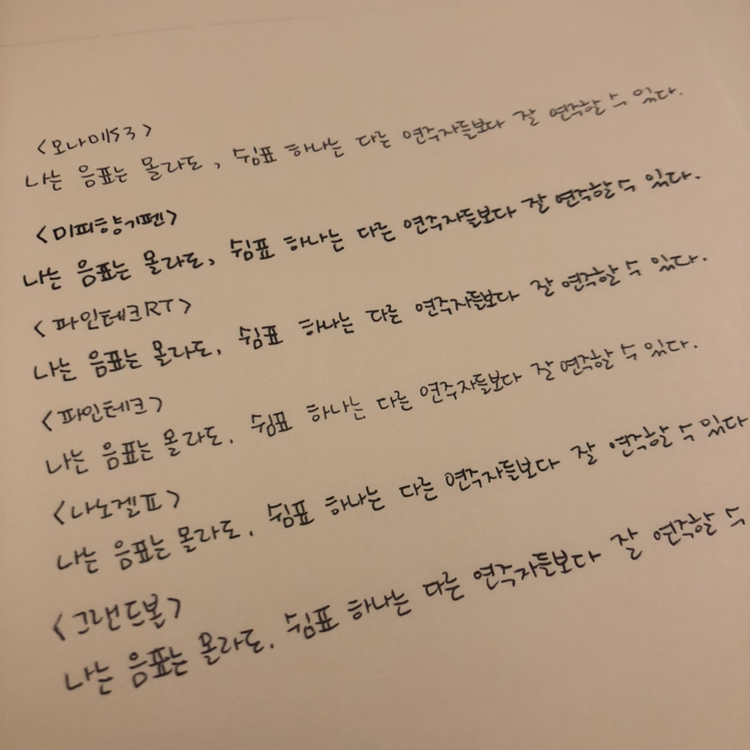 <모나미153>
나는 음표는 몰라도, 쉼표 하나는 다른 연주자들보다 잘 연주할 수 있다.
<미피향기펜>
나는 음표는 몰라도, 쉼표 하나는 다른 연주자들보다 잘 연주할 수 있다.
<파인테크RT>
나는 음표는 몰라도, 쉼표 하나는 다른 연주자들보다 잘 연주할 수 있다.
<파인테크>
나는 음표는 몰라도, 쉼표 하나는 다른 연주자들보다 잘 연주할 수 있다.
<나노겔피>
나는 음표는 몰라도, 쉼표 하나는 다른 연주자들보다 잘 연주할 수 있다
<그랜드볼>
나는 음표는 몰라도, 쉼표 하나는 다른 연주자들보다 잘 연주할 수